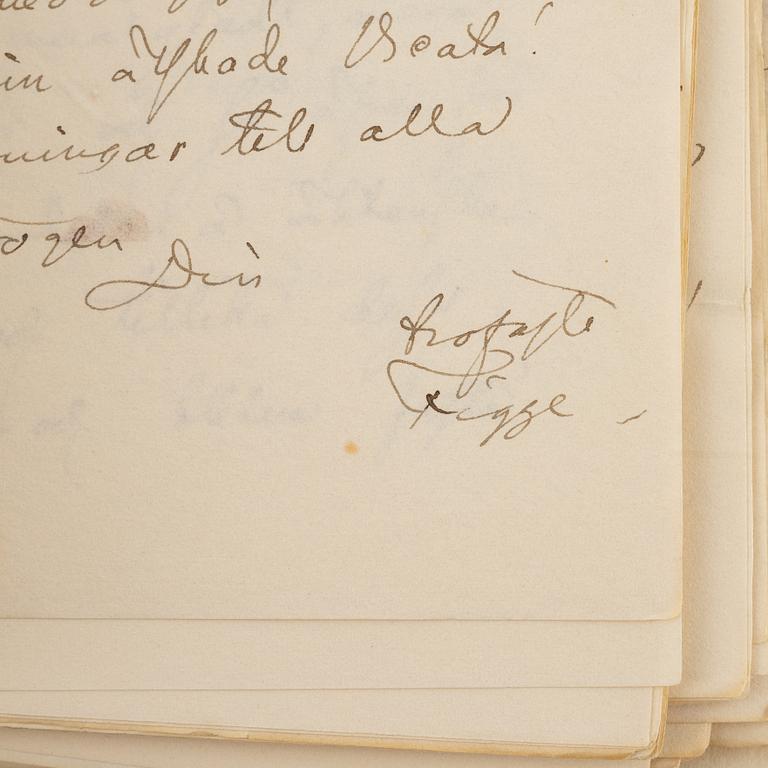 in älskade Beata!
ningar till alla
ogen
Din
trofaste
Figge -